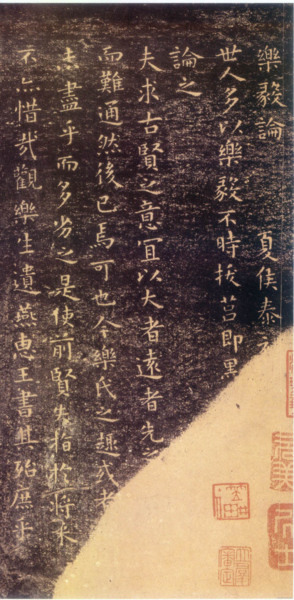 樂毅論 夏侯泰初
世人多以樂毅不時拔莒即墨
論之
夫求古賢之意宜以大者遠者先之
而難通然後已焉可也今樂氏之趣或者
未盡乎而多劣之是使前賢失指於將来
不亦惜哉觀樂生遺燕惠王書其殆庶乎